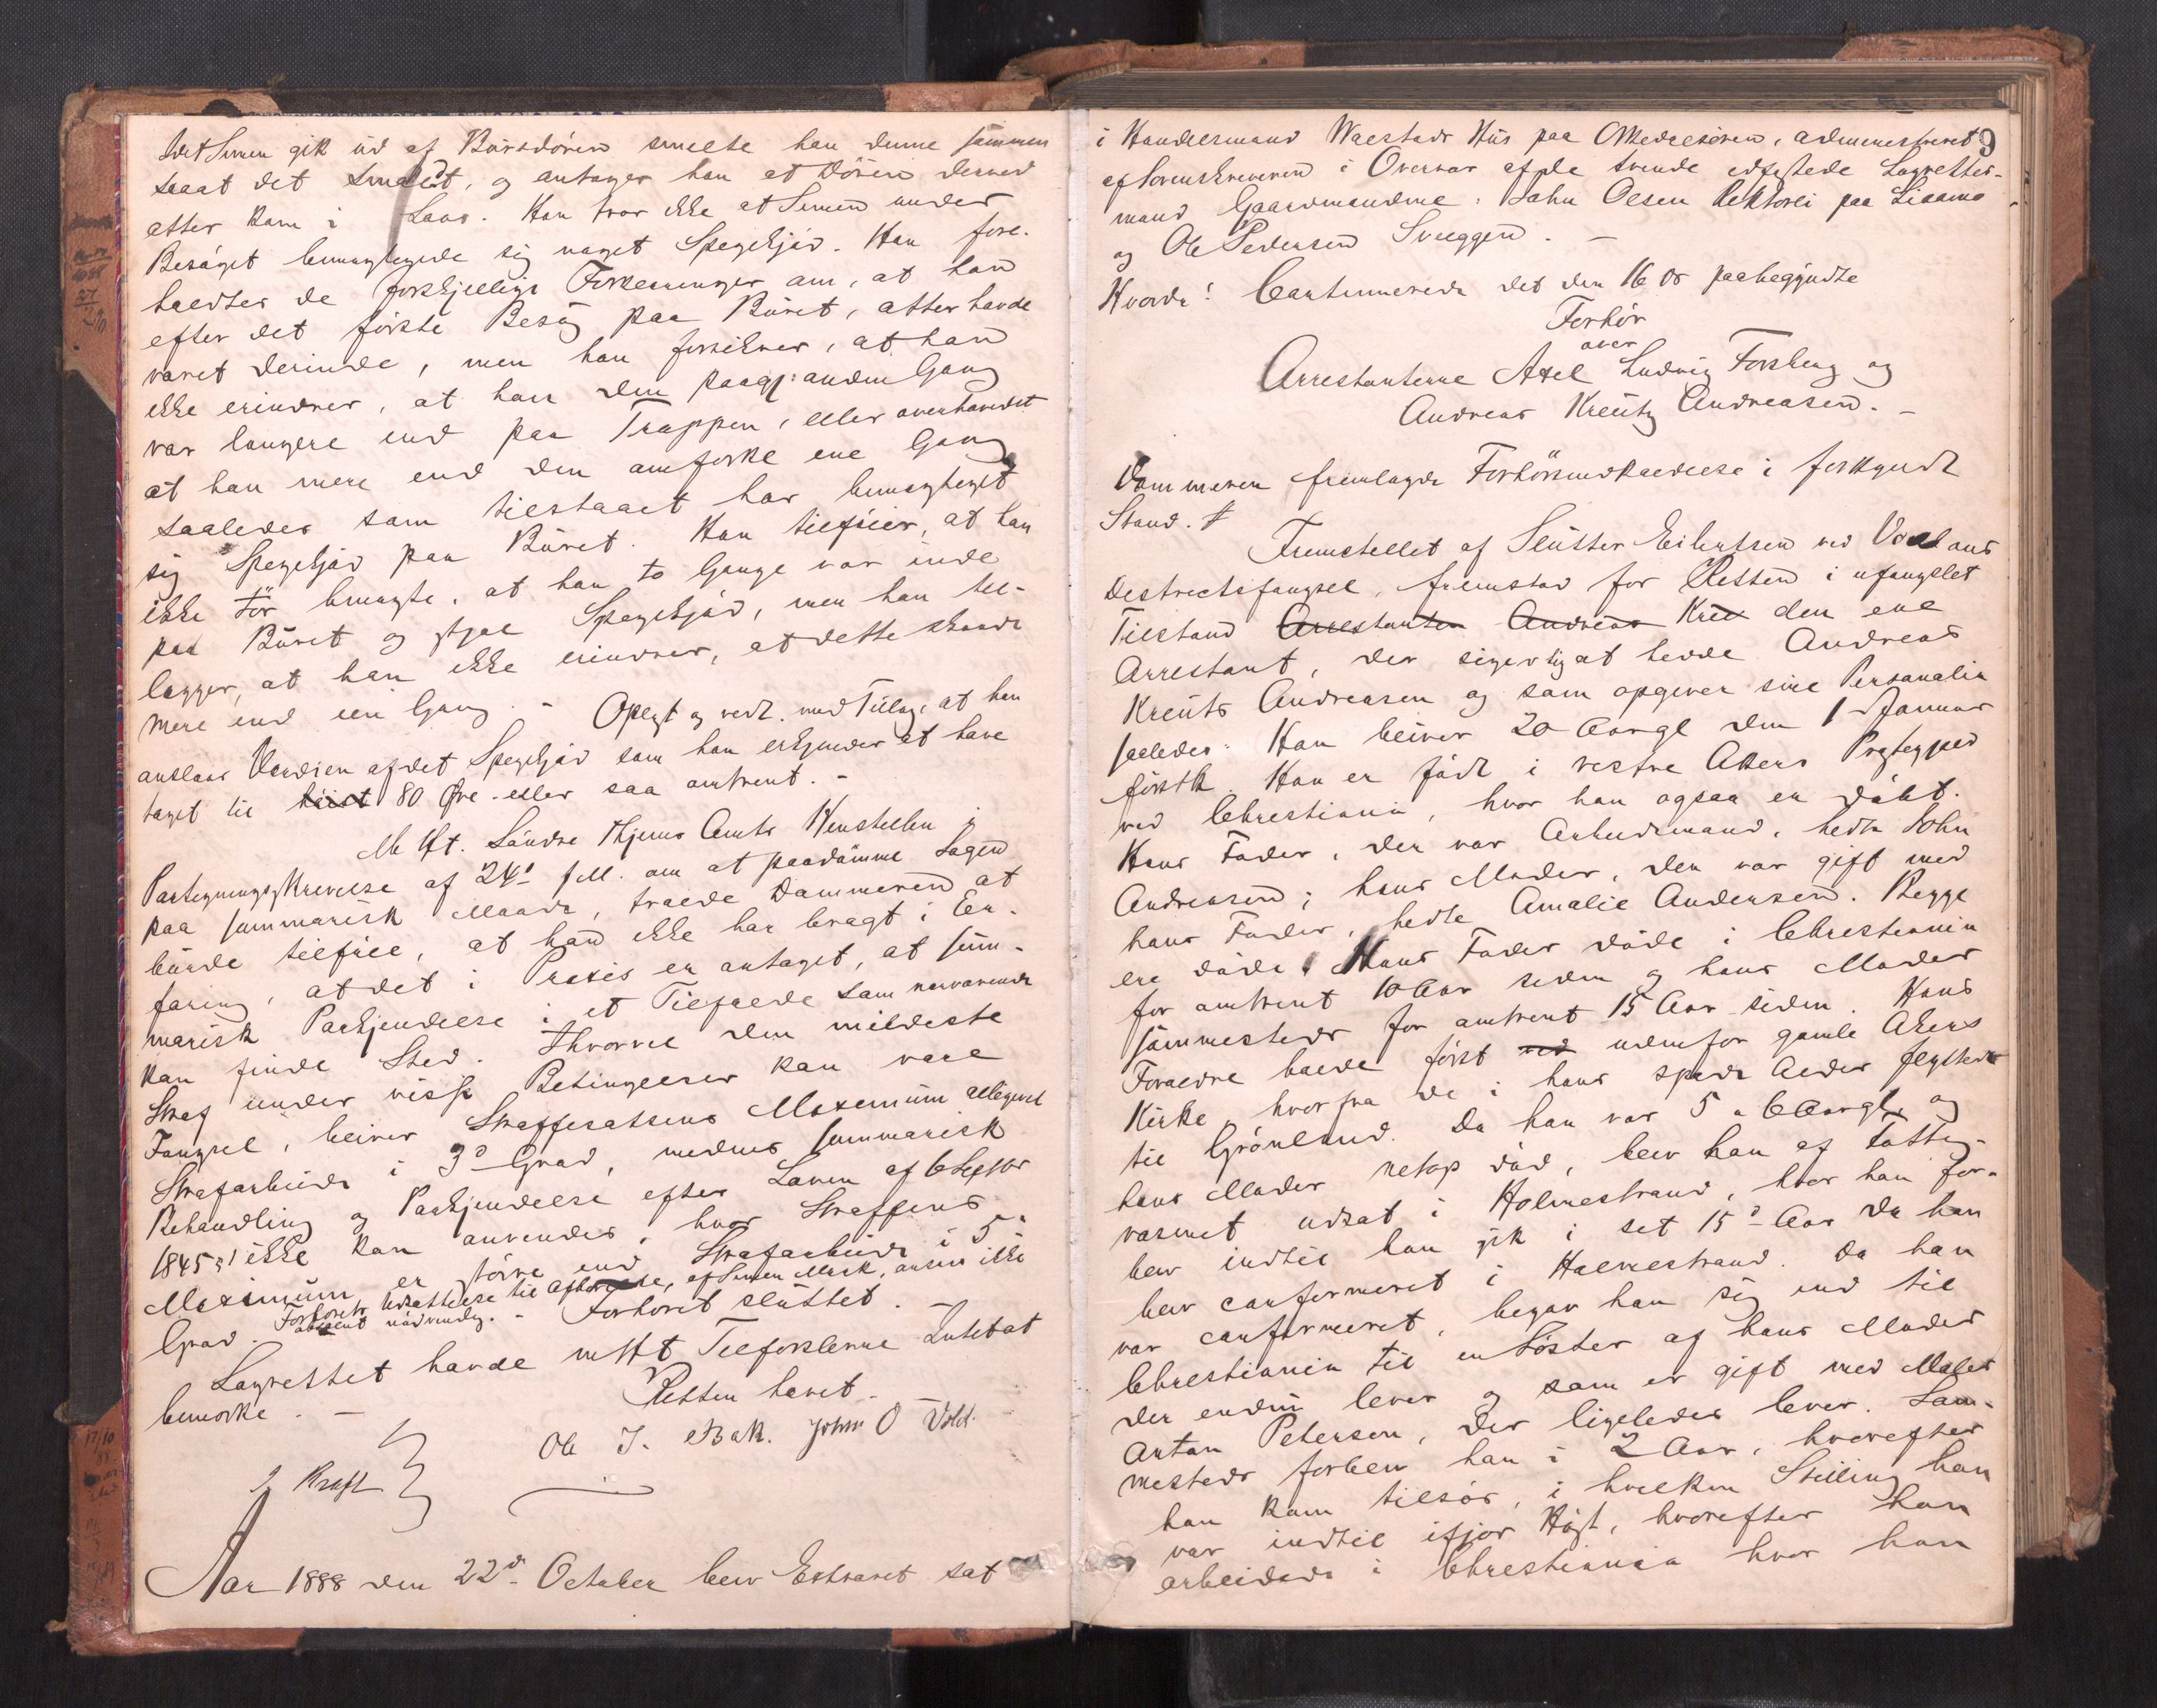 Idet Simen gik ud af Bursdören smelte han denne sammen
saaat det smaldt, og antager han at Dören derved
atter kom i Laas. Han tror ikke at Simen under
Besöget bemægtigede sig noget Spegekjöd. Han fore-
holdtes de forskjellige Forklaringer om, at han
efter det förste Besög paa Buret, atter havde
været derinde, men han forsikrer, at han
ikke erindrer, at han den paagj. anden Gang
var længere end paa Trappen, eller overhovedet
at han mere end den omforkl. ene Gang
saaledes som tilstaaet har bemægtiget
sig Spegekjöd paa Buret. Han tilföier, at han
ikke tör benegte, at han to Gange var inde
paa Buret og stjal Spegekjöd, men han til-
lægger, at han ikke erindrer, at dette skede
mere end een Gang. - Oplæst og vedt. med Tillæg, at han
anslaar Værdien af det Spegekjöd som han erkjender at have
taget til höist 80 Øre - eller saa omtrent. -
M. Ht. Söndre Thjems Amts Henstillen i
Partegningsskrivelse af 24de f.M. om at paadömme Sagen
paa summarisk Maade, troede Dommeren at
burde tilföie, at han ikke har bragt i Er-
faring, at det i Praxis er antaget, at sum-
marisk Paakjendelse i et Tilfælde som nærværende
kan finde Sted. Ihvorvel den mildeste
Straf under visse Betingelser kan være
Fængsel, bliver Straffesatsens Maximum alligevel
Strafarbeide i 3die Grad, medens summarisk
Behandling og Paakjendelse efter Loven af 6 Septbr
1845 § 1 ikke kan anvendes, hvor Straffens
Maximum er större end Strafarbeide i 5te
Grad. Forhörets Udsættelse til Afhörelse af Simen Mosk, ansees ikke
absolut nödvendig. - Forhöret sluttet. -
Lagrettet havde m Ht Tilförslerne Intet at
bemærke. - Retten hævet. -
J Kraft Ole J. Bak. John O Vold.
Aar 1888 den 22de October blev Extraret sat
9
i Handelsmand Wæstads Hus paa Meldalsören, administreret
af Sorenskriveren i Overvær af de tvende edfæstede Lagrettes-
mænd Gaardmændene: John Olsen Rektorli paa Lisamo
og Ole Pedersen Svinggen. -
Hvorda! Continuerede det den 16 ds paabegyndte
Forhör
over
Arrestanterne Axel Ludvig Forsberg og
Andreas Kreutz Andreasen. -
Dommeren fremlagde Forhörsindkaldelse i forkyndt
Stand. #
Fremstillet af Slutter Eilertsen ved Vollans
Destrictsfængsel, fremstod for Retten i ufængslet
Tilstand Arrestanten Andreas Kreu den ene
Arrestant, der siger sig at hedde Andreas
Kreuts Andreasen og som opgiver sine Personalia
saaledes: Han bliver 20 Aar gl den 1 Januar
förstk. Han er födt i vestre Akers Prestegjeld
ved Christiania, hvor han ogsaa er döbt.
Hans Fader, der var Arbeidsmand, hedte John
Andreasen; hans Moder, der var gift med
hans Fader, hedte Amalie Andersen. Begge
ere döde. Hans Fader döde i Christiania
for omtrent 10 Aar siden og hans Moder
sammesteds for omtrent 15 Aar siden. Hans
Forældre boede först ved udenfor gamle Akers
Kirke, hvorfra de i hans spæde Alder flyttede
til Grönland. Da han var 5 a 6 Aar gl, og
hans Moder netop död, blev han af Fattig-
væsenet udsat i Holmestrand, hvor han for-
blev indtil han gik i sit 15de Aar da han
blev confirmeret i Holmestrand. Da han
var confirmeret, begav han sig ind til
Christiania til en Söster af hans Moder
der endnu lever og som er gift med Maler
Anton Petersen, der ligeledes lever. Sam-
mesteds forblev han i 2 Aar, hvorefter
han kom tilsös, i hvilken Stilling han
var indtil ifjor Höst, hvorefter han
arbeidede i Christiania hvor han